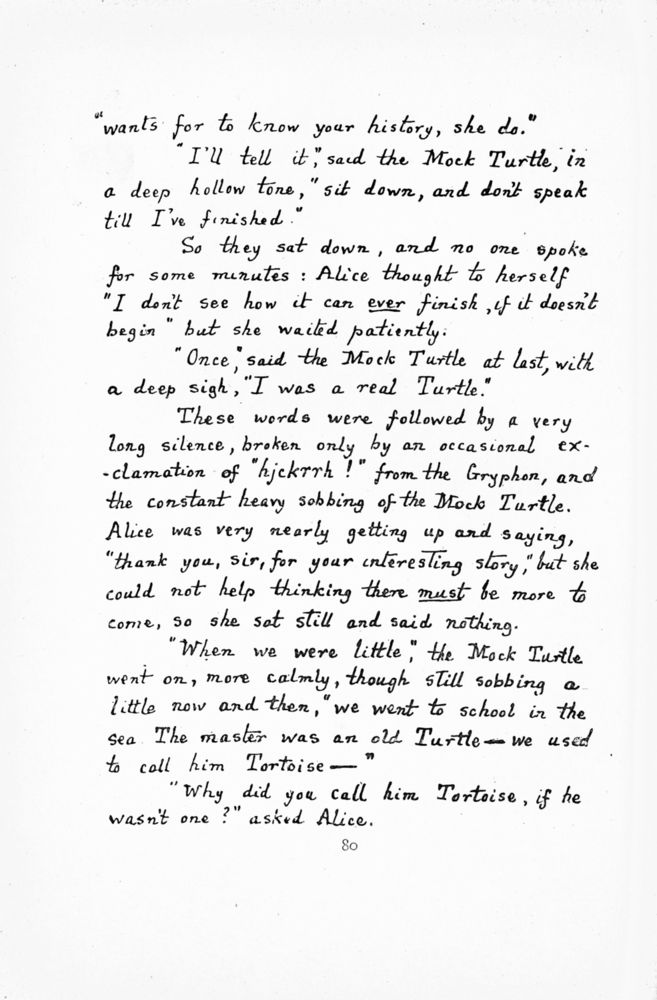 "wants for to know your history, she do."
"I'll tell it," said the Mock Turtle, in
a deep hollow tone, "sit down, and don't speak
till I've finished."
So they sat down, and no one spoke
for some minutes: Alice thought to herself
"I don't see how it can ever finish, if it doesn't
begin" but she waited patiently.
"Once," said the Mock Turtle at last, with
a deep sigh, "I was a real Turtle."
These words were followed by a very
long silence, broken only by an occasional ex-
-clamation of "hjckrrh!" from the Gryphon, and
the constant heavy sobbing of the Mock Turtle.
Alice was very nearly getting up and saying,
"thank you, sir, for your interesting story," but she
could not help thinking there must be more to
come, so she sat still and said nothing.
"When we were little," the Mock Turtle
went on, more calmly, though still sobbing a
little now and then, "we went to school in the
sea. The master was an old Turtle — we used
to call him Tortoise — "
"Why did you call him Tortoise, if he
wasn't one?" asked Alice.
80